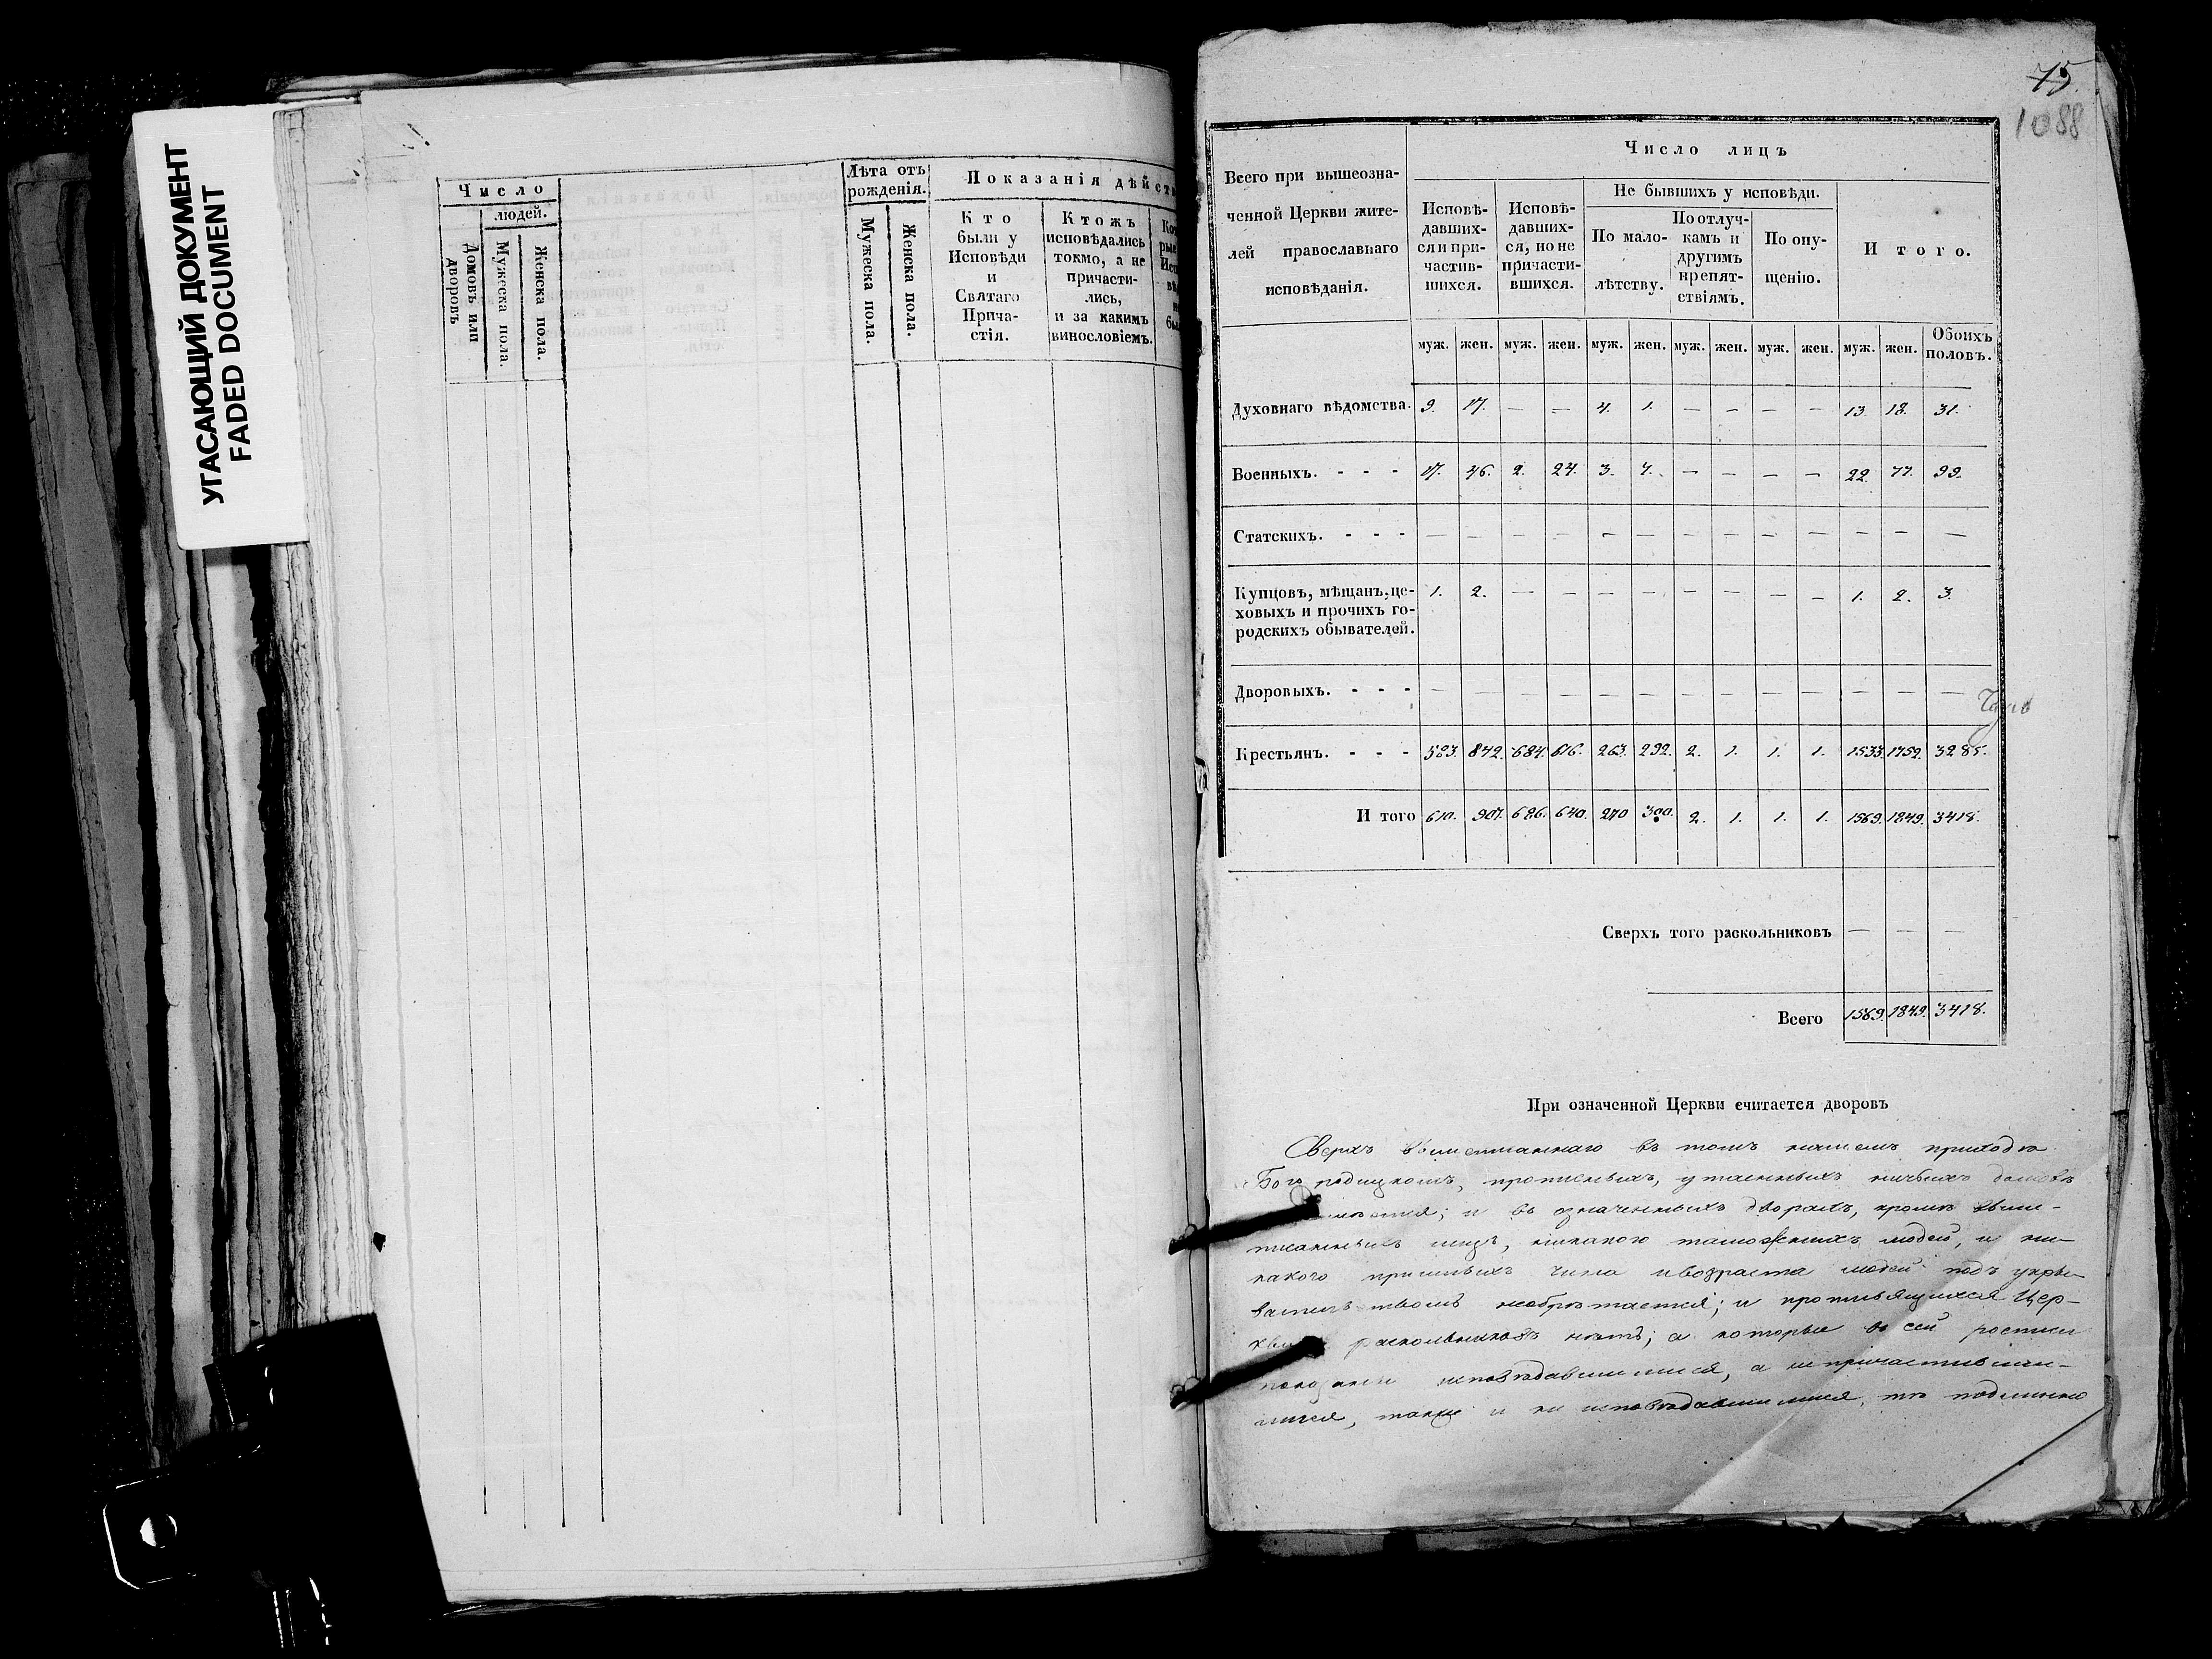 УГАСАЮЩИЙ ДОКУМЕНТ
FADED DOCUMENT
Число
людей.
Домовъ или дворовъ
Мужеска пола.
Женска пола.
Лѣта отъ рожденія.
Мужеска пола.
Женска пола.
Показанія дѣйств
Кто были у Исповѣди и Святаго Прича-стія.
Ктожъ исповѣдались токмо, а не причасти-лись, и за какимъ винословіемъ.
75.
1088
Всего при вышеозна-
ченной Церкви жите-
лей православнаго
исповѣданія.
Число лицъ
Исповѣ-давших-ся и при-частив-шихся.
Исповѣ-давших-ся, но не причасти-вшихся.
Не бывшихъ у исповѣди.
По мало-лѣтству.
По отлуч-камъ и другимъ препят-ствіямъ.
По опу-щенію.
И того.
муж. жен. муж. жен. муж. жен. муж. жен. муж. жен. муж. жен. Обоихъ половъ.
Духовнаго вѣдомства. 9. 17. — — 4. 1. — — — — 13. 18. 31.
Военныхъ. - - - 17. 46. 2. 24. 3. 7. — — — — 22. 77. 99.
Статскихъ. - - - — — — — — — — — — — — — —
Купцовъ, мѣщанъ, це- 1. 2. — — — — — — — — 1. 2. 3.
ховыхъ и прочихъ го-
родскихъ обывателей.
Дворовыхъ. - - - — — — — — — — — — — — — —
Крестьянъ. - - - 583. 842. 684. 616. 263. 292. 2. 1. 1. 1. 1533. 1752. 3285.
И того 610. 907. 686. 640. 270 300. 2. 1. 1. 1. 1569. 1849. 3418.
Сверхъ того раскольниковъ — — —
Всего 1569. 1849. 3418.
При означенной Церкви считается дворовъ
Сверхъ вышеписаннаго въ томъ нашемъ приходѣ
Богородицкомъ, прописныхъ, утаенныхъ ничьихъ домовъ
и въ означенныхъ дворахъ, кромѣ выше-
писанныхъ лицъ, никакого тамошнихъ людей, и ни-
какого пришлыхъ чина и возраста людей подъ укры-
вательствомъ необрѣтается; и противящихся Цер-
кви раскольниковъ нѣтъ; а которые въ сей росписи
показаны исповѣдавшимися, а не причастивши-
мися, также и не исповѣдавшимися, тѣ подлинно